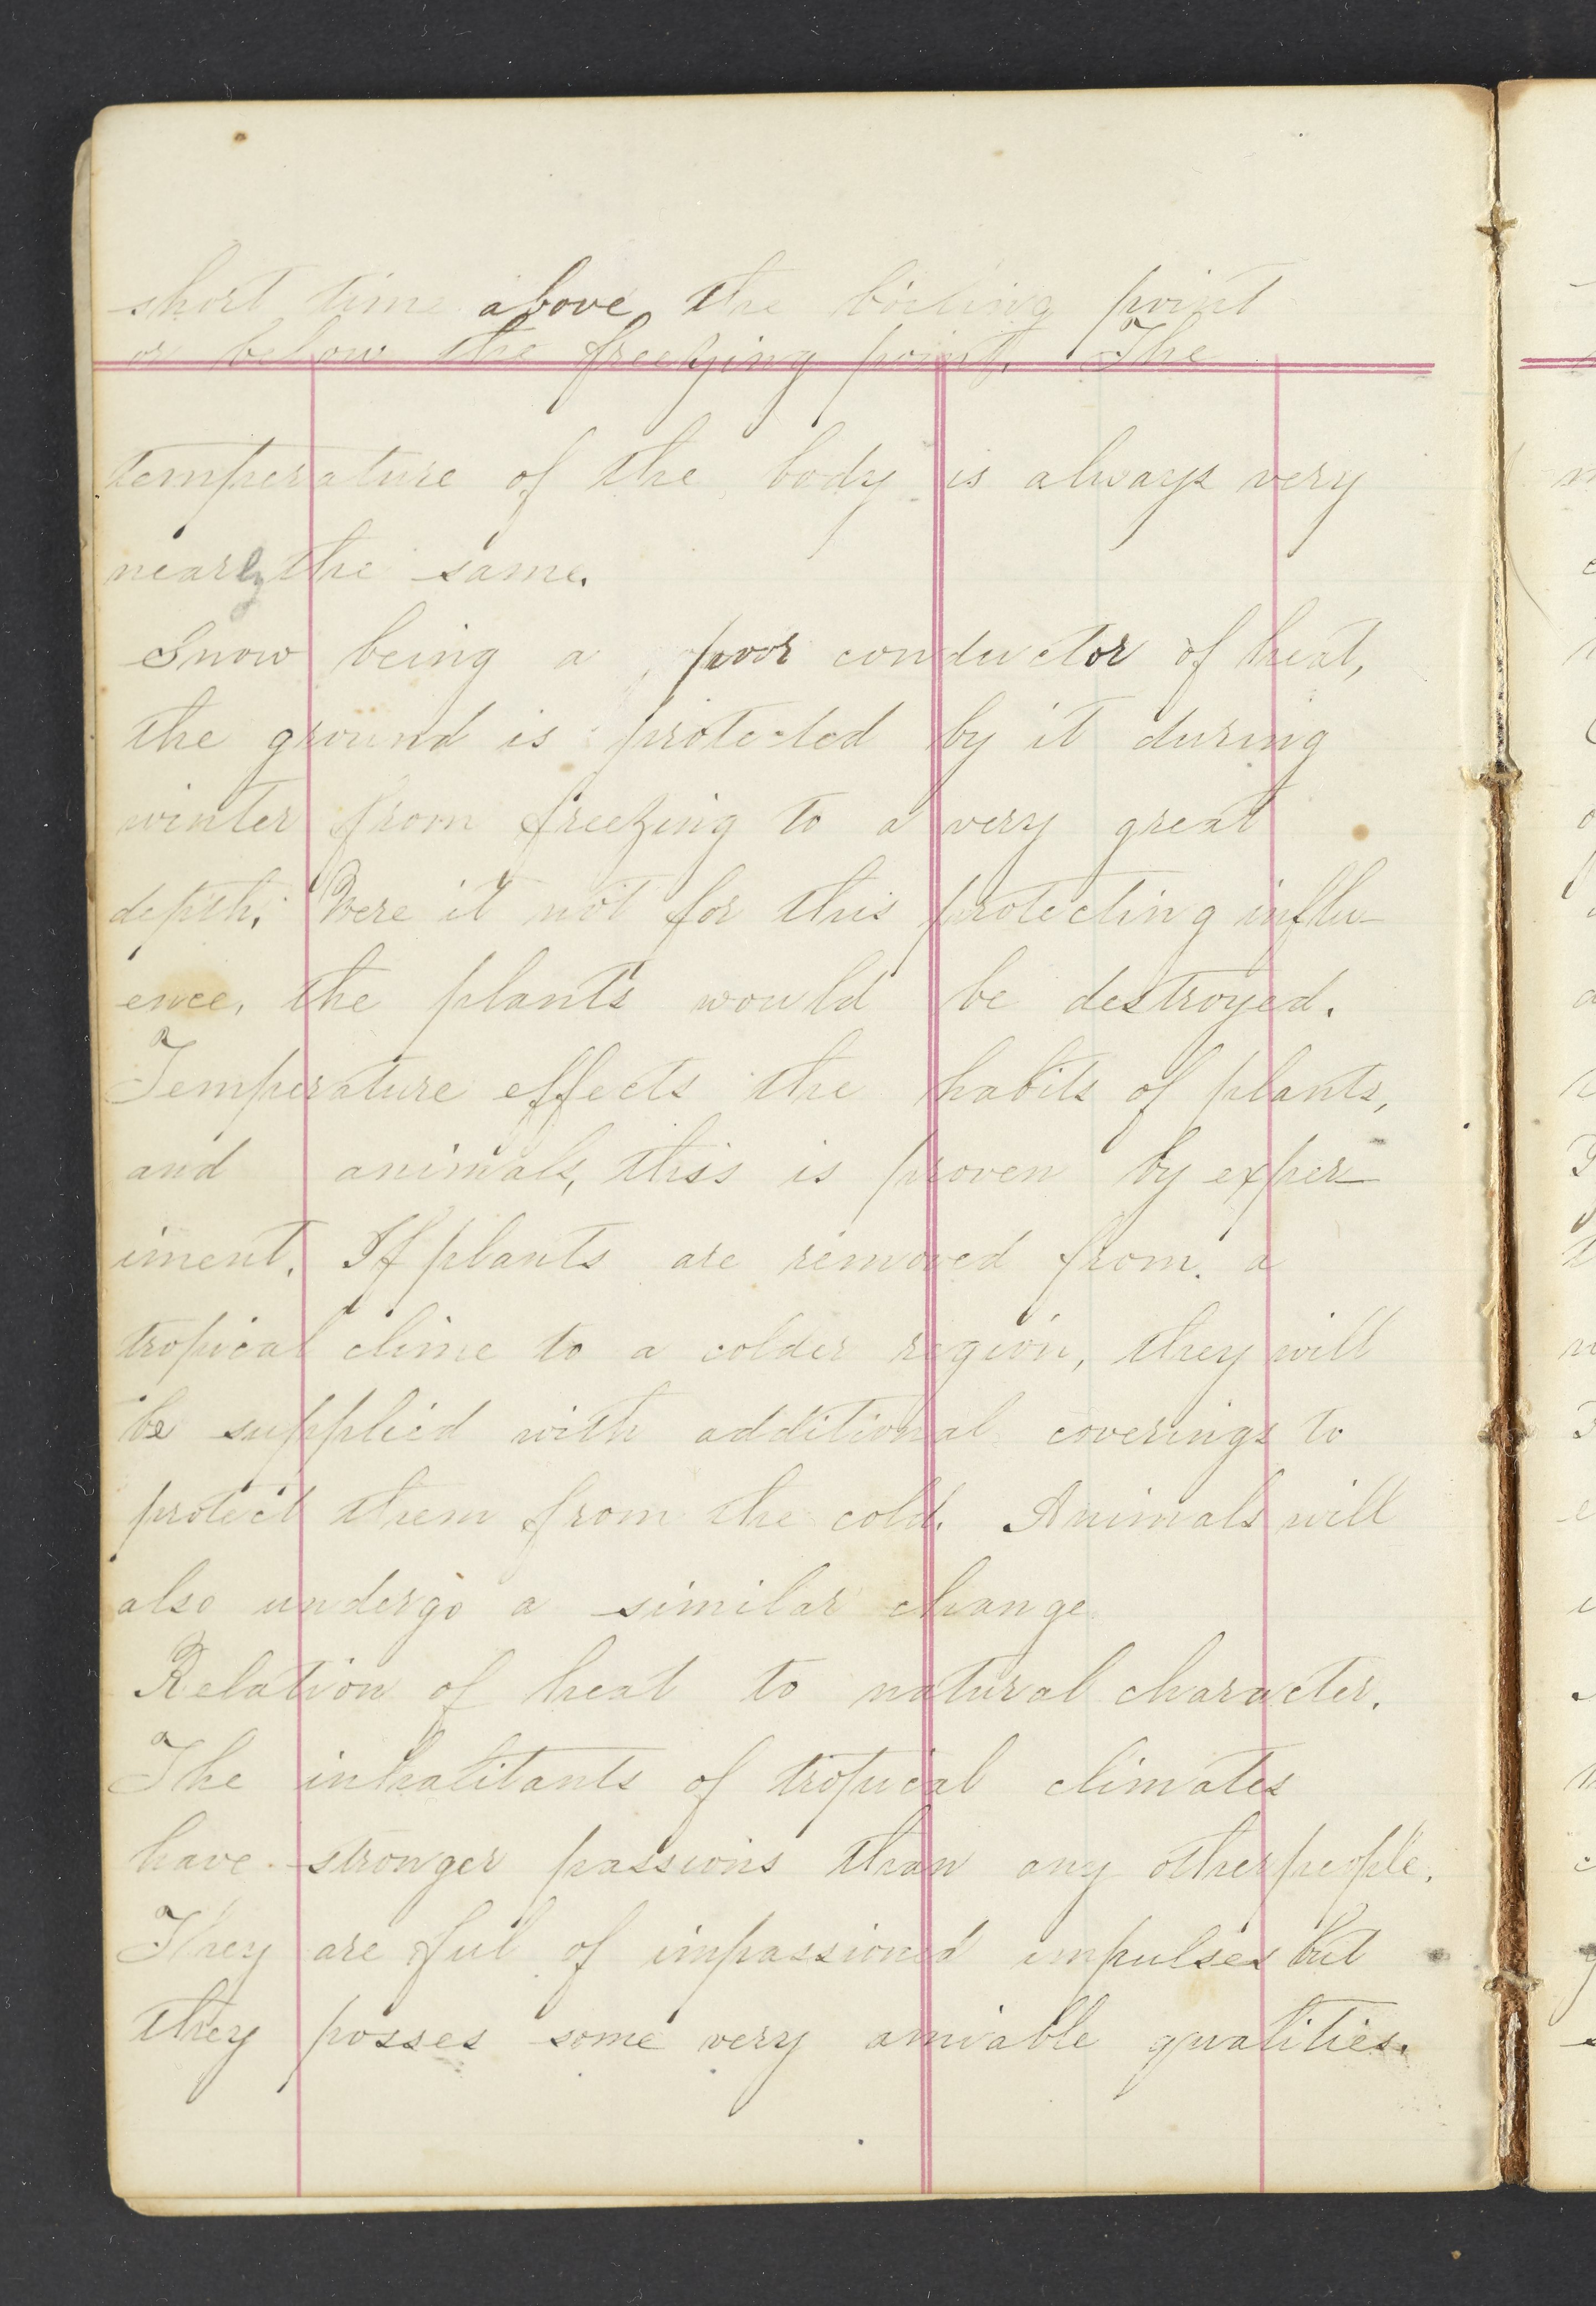 short time above the boiling point
or below the freezing point. The
temperature of the body is always very
nearly the same.
Snow being a poor conductor of heat,
the ground is protected by it during
winter from freezing to a very great
depth. Were it not for this protecting influ-
ence, the plants would be destroyed.
Temperature effects the habits of plants,
and animals, this is proven by exper-
iment. If plants are removed from a
tropical clime to a colder region, they will
be supplied with additional coverings to
protect them from the cold. Animals will
also undergo a similar change.
Relation of heat to natural character.
The inhabitants of tropical climates
have stronger passions than any other people.
They are ful of impassioned impulses but
they posses some very amiable qualities.